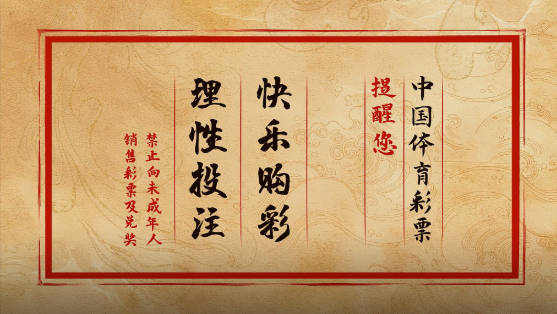 中国体育彩票
提醒您
快乐购彩
理性投注
禁止向未成年人
销售彩票及兑奖